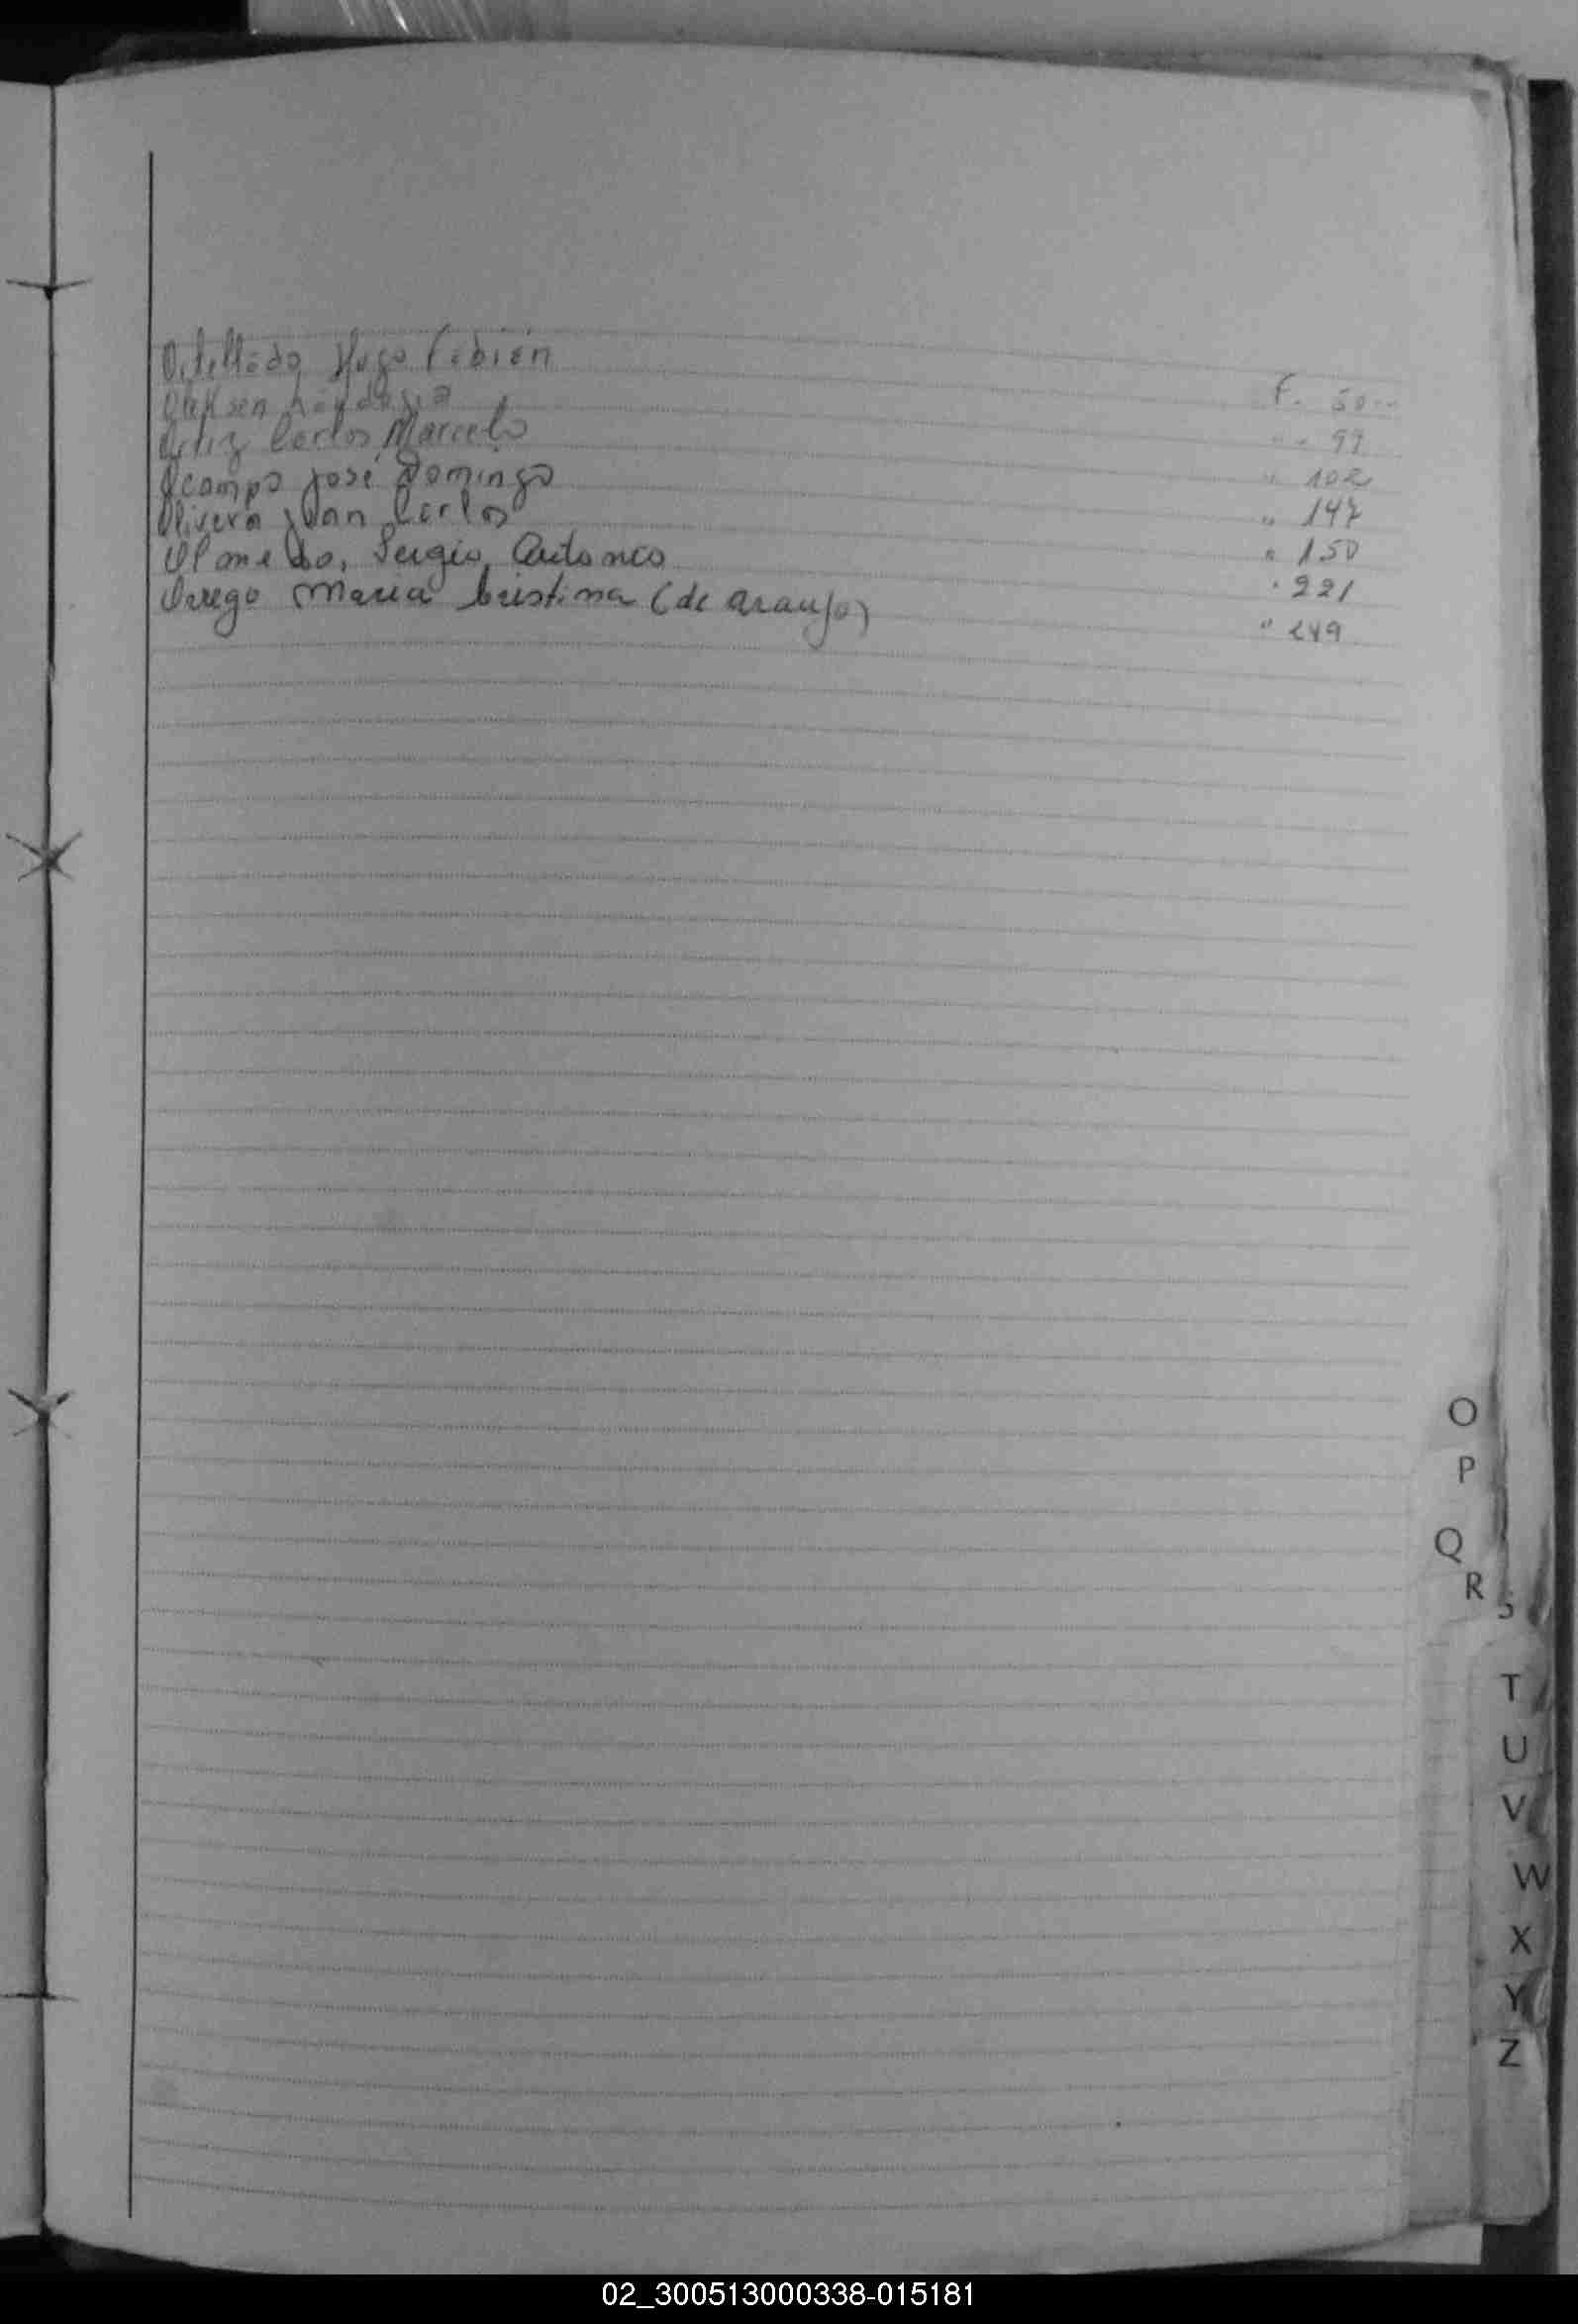 Hugo Fabián F. 50--
" " 99
Ortiz Carlos Marcelo " 102
Ocampo José Domingo " 147
Olivera Juan Carlos " 150
Olmedo, Sergio Antonio " 221
Orrego Maria Cristina (de Araujo) " 249
O
P
Q
R
S
T
U
V
W
X
Y
Z
02_300513000338-015181